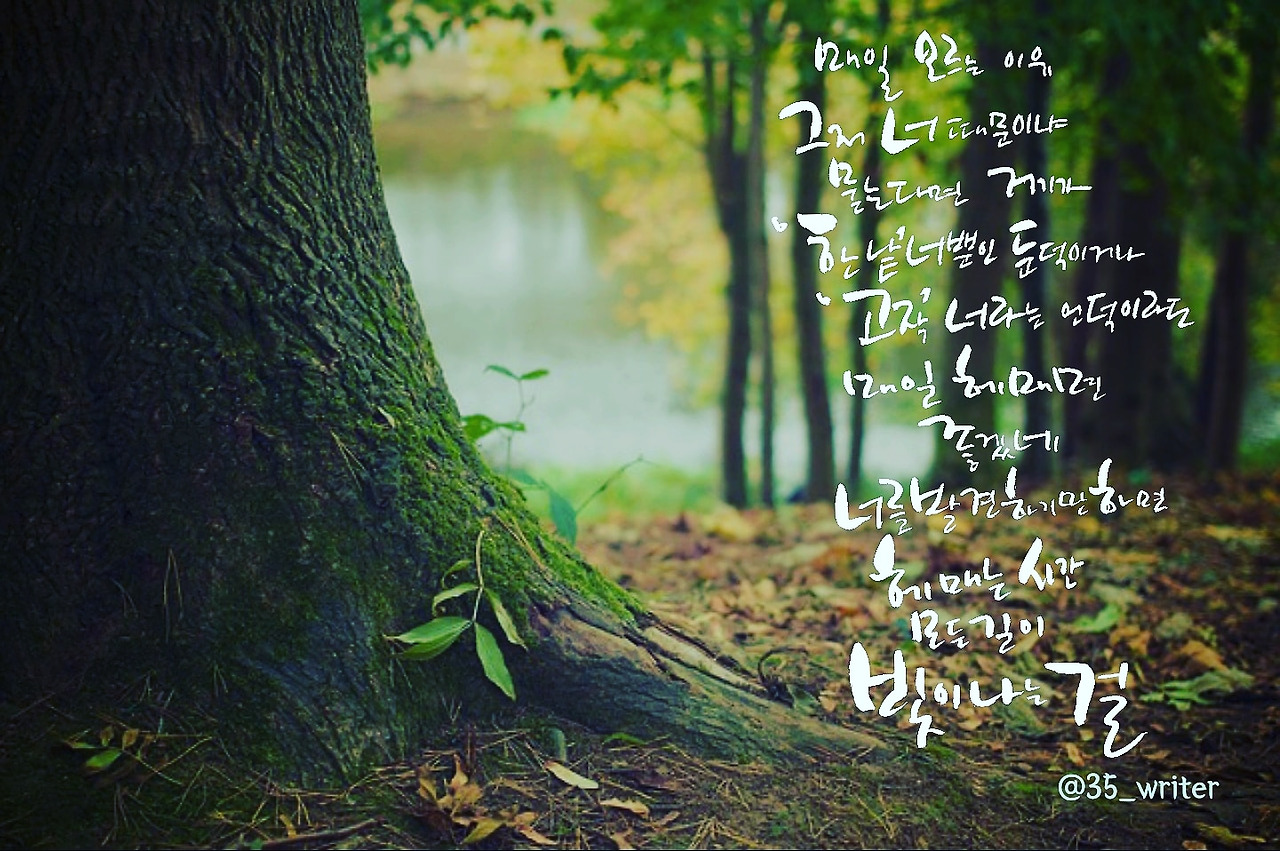 매일 오르는 이유
그저 너 때문이냐
묻는다면 거기가
"한낱" 너뿐인 둔덕이거나
"고작" 너라는 언덕이라도
매일 헤매면
좋겠네
너를 발견하기만 하면
헤매는 시간
모든 길이
빛이 나는 걸
@35_writer